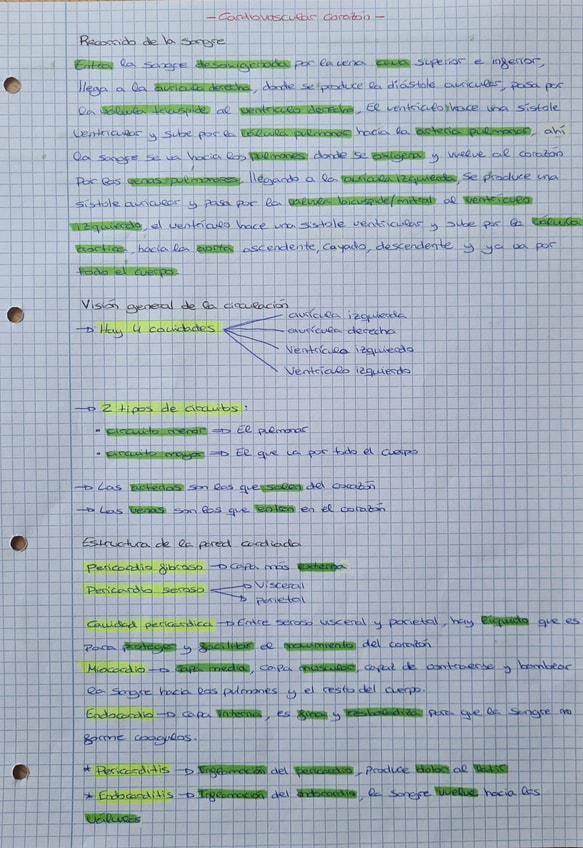 - Cardiovascular corazón -
Recorrido de la sangre
Entra la sangre desoxigenada por la vena cava superior e inferior,
llega a la aurícula derecha, donde se produce la diástole auricular, pasa por
la válvula tricúspide al ventrículo derecho, El ventrículo hace una sístole
ventricular y sube por la válvula pulmonar hacia la arteria pulmonar, ahí
la sangre se va hacia los pulmones donde se oxigena y vuelve al corazón
por las venas pulmonares, llegando a la aurícula izquierda, se produce una
sístole auricular y pasa por la válvula bicúspide/mitral al ventrículo
izquierdo, el ventrículo hace una sístole ventricular y sube por la válvula
aórtica, hacia la aorta ascendente, cayado, descendente y ya va por
todo el cuerpo.
Visión general de la circulación
→ Hay 4 cavidades
aurícula izquierda
aurícula derecha
Ventrículo izquierdo
Ventrículo izquierdo
→ 2 tipos de circuitos:
• circuito menor ⇒ El pulmonar
• circuito mayor ⇒ El que va por todo el cuerpo
→ Las arterias son las que salen del corazón
→ Las venas son las que entran en el corazón
Estructura de la pared cardíaca
Pericardio fibroso → capa más externa
Pericardio seroso → Visceral
→ parietal
Cavidad pericárdica → Entre seroso visceral y parietal, hay líquido que es
para proteger y facilitar el movimiento del corazón
Miocardio → capa media, capa muscular, capaz de contraerse y bombear
la sangre hacia los pulmones y el resto del cuerpo.
Endocardio → capa interna, es fina y resbaladiza para que la sangre no
forme coágulos.
* Pericarditis → Inflamación del pericardio, produce dolor al latir
* Endocarditis → Inflamación del endocardio, la sangre vuelve hacia las
válvulas